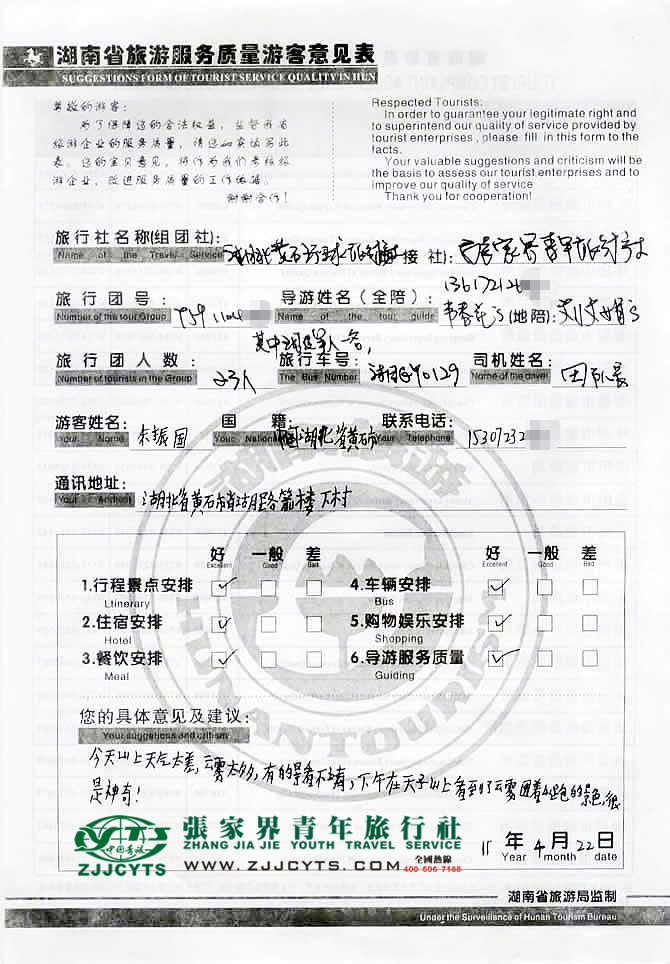 湖南省旅游服务质量游客意见表
SUGGESTIONS FORM OF TOURIST SERVICE QUALITY IN HUN
尊敬的游客:
为了保障您的合法权益,监督我省
旅游企业的服务质量,请您如实填写此
表。您的宝贵意见,将作为我们考核旅
游企业、改进服务质量的工作依据。
谢谢合作!
Respected Tourists:
In order to guarantee your legitimate right and
to superintend our quality of service provided by
tourist enterprises, please fill in this form to the
facts.
Your valuable suggestions and criticism will be
the basis to assess our tourist enterprises and to
improve our quality of service
Thank you for cooperation!
旅行社名称(组团社): 湖北黄石环球 接社):
Name of the Travel Service
136172126
旅行团号: 导游姓名(全陪): (地陪):
Number of the tour Group Name of the tour guide
旅行团人数: 23人 旅行车号: 湖 90129 司机姓名: 田队长
Number of tourists in the Group The Bus Number Name of the driver
游客姓名: 朱振国 国籍: 中国湖北省黄石市 联系电话: 15307232
Your Name Your Nationality Your Telephone
通讯地址: 湖北省黄石市 下村
Your Address
好 一般 差 好 一般 差
Excellent Good Bad Excellent Good Bad
1.行程景点安排 4.车辆安排
Ltinerary Bus
2.住宿安排 5.购物娱乐安排
Hotel Shopping
3.餐饮安排 6.导游服务质量
Meal Guiding
HUNANTOURISM
您的具体意见及建议:
Your suggestions and critism
今天山上天气太差,云雾太多,有的景看不清,下午在天子山上看到了云雾围着山跑的景色,很
是神奇!
中国青旅
ZJJCYTS
張家界青年旅行社
ZHANG JIA JIE YOUTH TRAVEL SERVICE
WWW.ZJJCYTS.COM 全國熱線
400 606 7188
15 年 4 月 22 日
Year month date
湖南省旅游局监制
Under the Surveillance of Hunan Tourism Bureau